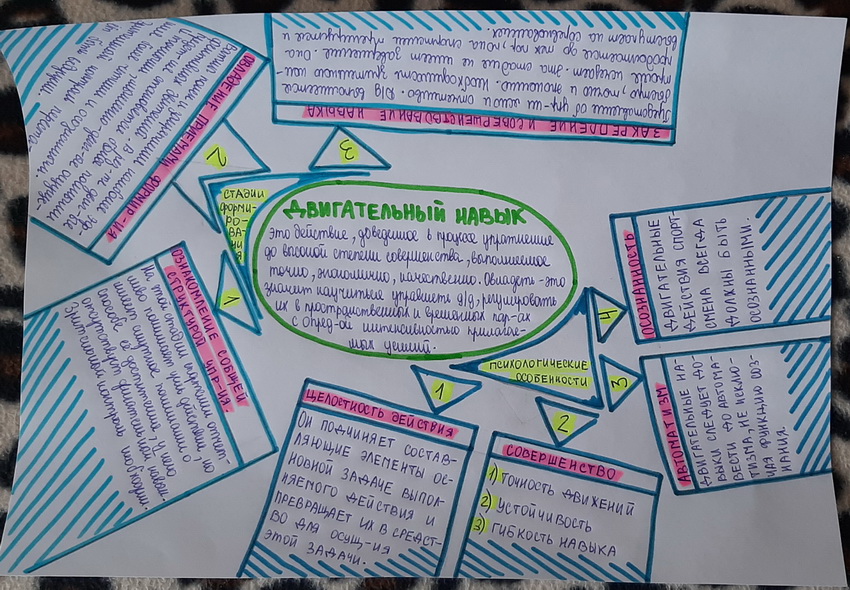 ДВИГАТЕЛЬНЫЙ НАВЫК
Это действие, доведенное в процессе упражнения
до высокой степени совершенства, выполняемое
точно, экономично, качественно. Овладеть - это
значит научиться управлять д/д, регулировать
их в пространственных и временных пар-ах
с опред-ой интенсивностью прилагае-
мых усилий.
СТАДИИ
ФОРМИ-
РО-
ВА-
НИ
Я
1
ОЗНАКОМЛЕНИЕ С ОБЩЕЙ
СТРУКТУРОЙ УПР-ИЯ.
На этой стадии спортсмен отчет-
ливо понимает цель действия, но
имеет смутное понимание о
способе её достижения. У него
отсутствует двигательный навык.
Зрительный контроль необходим.
2
ОВЛАДЕНИЕ ПРИЕМАМИ
ФОРМИР-ИЯ
3
ЗАКРЕПЛЕНИЕ И СОВЕРШЕНСТВОВАНИЕ НАВЫКА
Представления об упр-ии ясны и отчетливо. Д/д выполняется
быстро, точно и экономно. Необходимость зрительного кон-
троля исчезает. Эта стадия не имеет завершения. Она
продолжается до тех пор, пока спортсмен тренируется и
выступает на соревнованиях.
ПСИХОЛОГИЧЕСКИЕ
ОСОБЕННОСТИ
1
ЦЕЛОСТНОСТЬ ДЕЙСТВИЯ
ОН ПОДЧИНЯЕТ СОСТАВ-
ЛЯЮЩИЕ ЭЛЕМЕНТЫ ОС-
НОВНОЙ ЗАДАЧЕ ВЫПОЛ-
НЯЕМОГО ДЕЙСТВИЯ И
ПРЕВРАЩАЕТ ИХ В СРЕДСТ-
ВО ДЛЯ ОСУЩ-ИЯ
ЭТОЙ ЗАДАЧИ.
2
СОВЕРШЕНСТВО
1) ТОЧНОСТЬ ДВИЖЕНИЙ
2) УСТОЙЧИВОСТЬ
3) ГИБКОСТЬ НАВЫКА
3
АВТОМАТИЗМ
ДВИГАТЕЛЬНЫЕ НА-
ВЫКИ СЛЕДУЕТ ДО-
ВЕСТИ ДО АВТОМА-
ТИЗМА, НЕ ИСКЛЮ-
ЧАЯ ФУНКЦИЮ СОЗ-
НАНИЯ.
4
ОСОЗНАННОСТЬ
ДВИГАТЕЛЬНЫЕ
ДЕЙСТВИЯ СПОРТ-
СМЕНА ВСЕГДА
ДОЛЖНЫ БЫТЬ
ОСОЗНАННЫМИ.